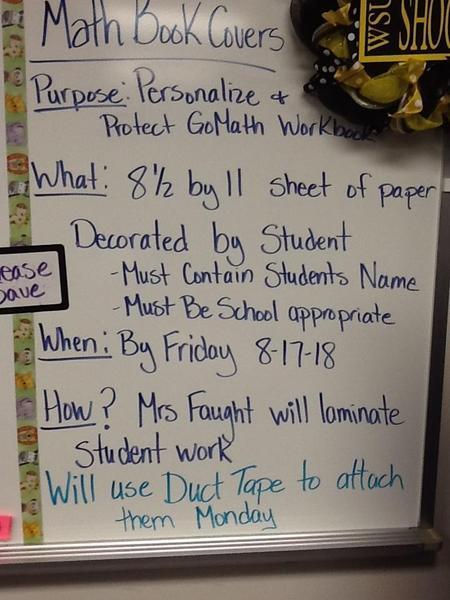 Math Book Covers
WSU
SHOC
Purpose: Personalize &
Protect GoMath Workbook
What: 8 1/2 by 11 sheet of paper
Decorated by Student
- Must Contain Students Name
- Must Be School appropriate
ease
Save
When: By Friday 8-17-18
How? Mrs Faught will laminate
Student work
Will use Duct Tape to attach
them Monday